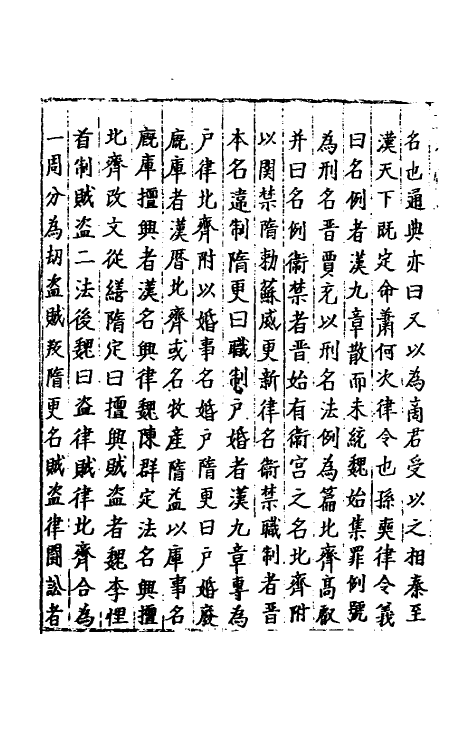 名也通典亦曰又以為商君受以之相秦至
漢天下既定命蕭何次律令也孫奭律令義
曰名例者漢九章散而未統魏始集罪例號
為刑名晉賈充以刑名法例為篇北齊高叡
并曰名例衛禁者晉始有衛宮之名北齊附
以関禁隋勅蘇威更新律名衞禁職制者晉
本名違制隋更曰職制戶婚者漢九章專為
戸律北齊附以婚事名婚戸隋更曰戸婚廄
廐庫者漢厝北齊或名牧産隋益以庫事名
廐庫擅興者漢名興律魏陳群定法名興擅
北齊改文從繕隋定曰擅興賊盗者魏李悝
首制賊盗二法後魏曰盗律賊律北齊合為
一周分為刧盗賊叛隋更名賊盗律鬪訟者